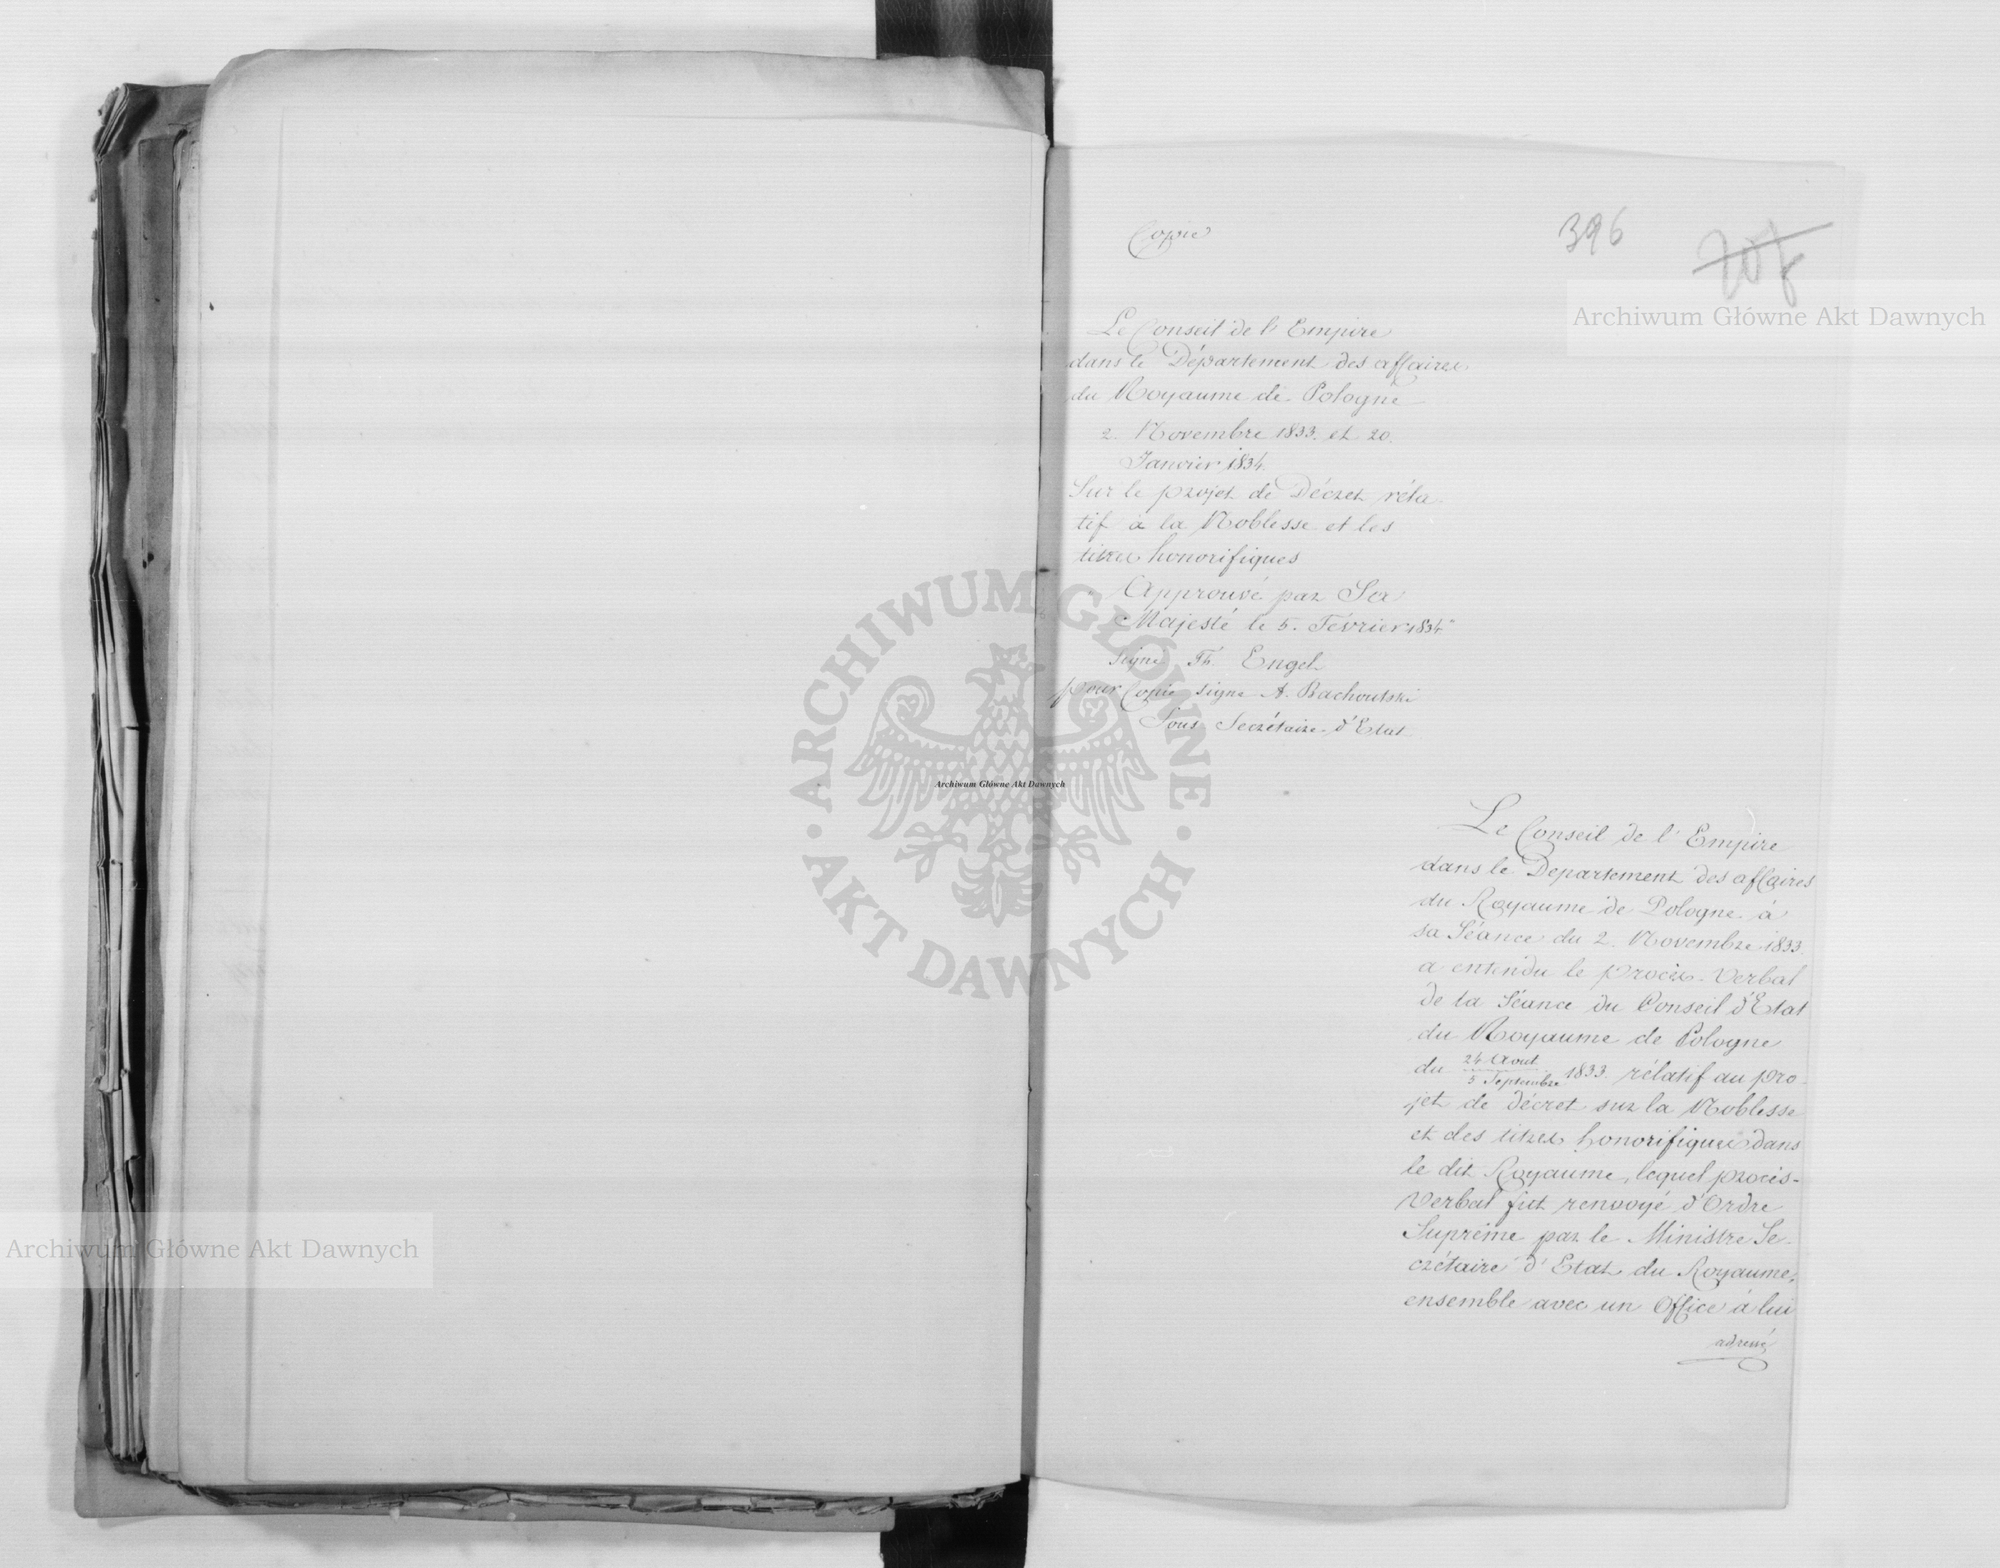 Copie
396
Le Conseil de l'Empire
dans le Département des affaires
du Royaume de Pologne
2. Novembre 1833. et 20.
Janvier 1834.
Sur le projet de Décret réla-
tif à la Noblesse et les
titres honorifiques
"Approuvé par Sa
Majesté le 5. Février 1834"
signé Th. Engel
pour Copie signé A. Bachoutski
Sous Secrétaire d'Etat
Le Conseil de l'Empire
dans le Departement des affaires
du Royaume de Pologne à
sa Séance du 2. Novembre 1833.
a entendu le procès-verbal
de la Séance du Conseil d'Etat
du Royaume de Pologne
du 24 Aout / 5 Septembre 1833. rélatif au pro-
jet de décret sur la Noblesse
et des titres honorifiques dans
le dit Royaume, lequel procès-
verbal fut renvoyé d'Ordre
Suprême par le Ministre Se-
crétaire d'Etat du Royaume,
ensemble avec un Office à lui
adressé
Archiwum Główne Akt Dawnych
ARCHIWUM GŁÓWNE · AKT DAWNYCH ·
Archiwum Główne Akt Dawnych
Archiwum Główne Akt Dawnych